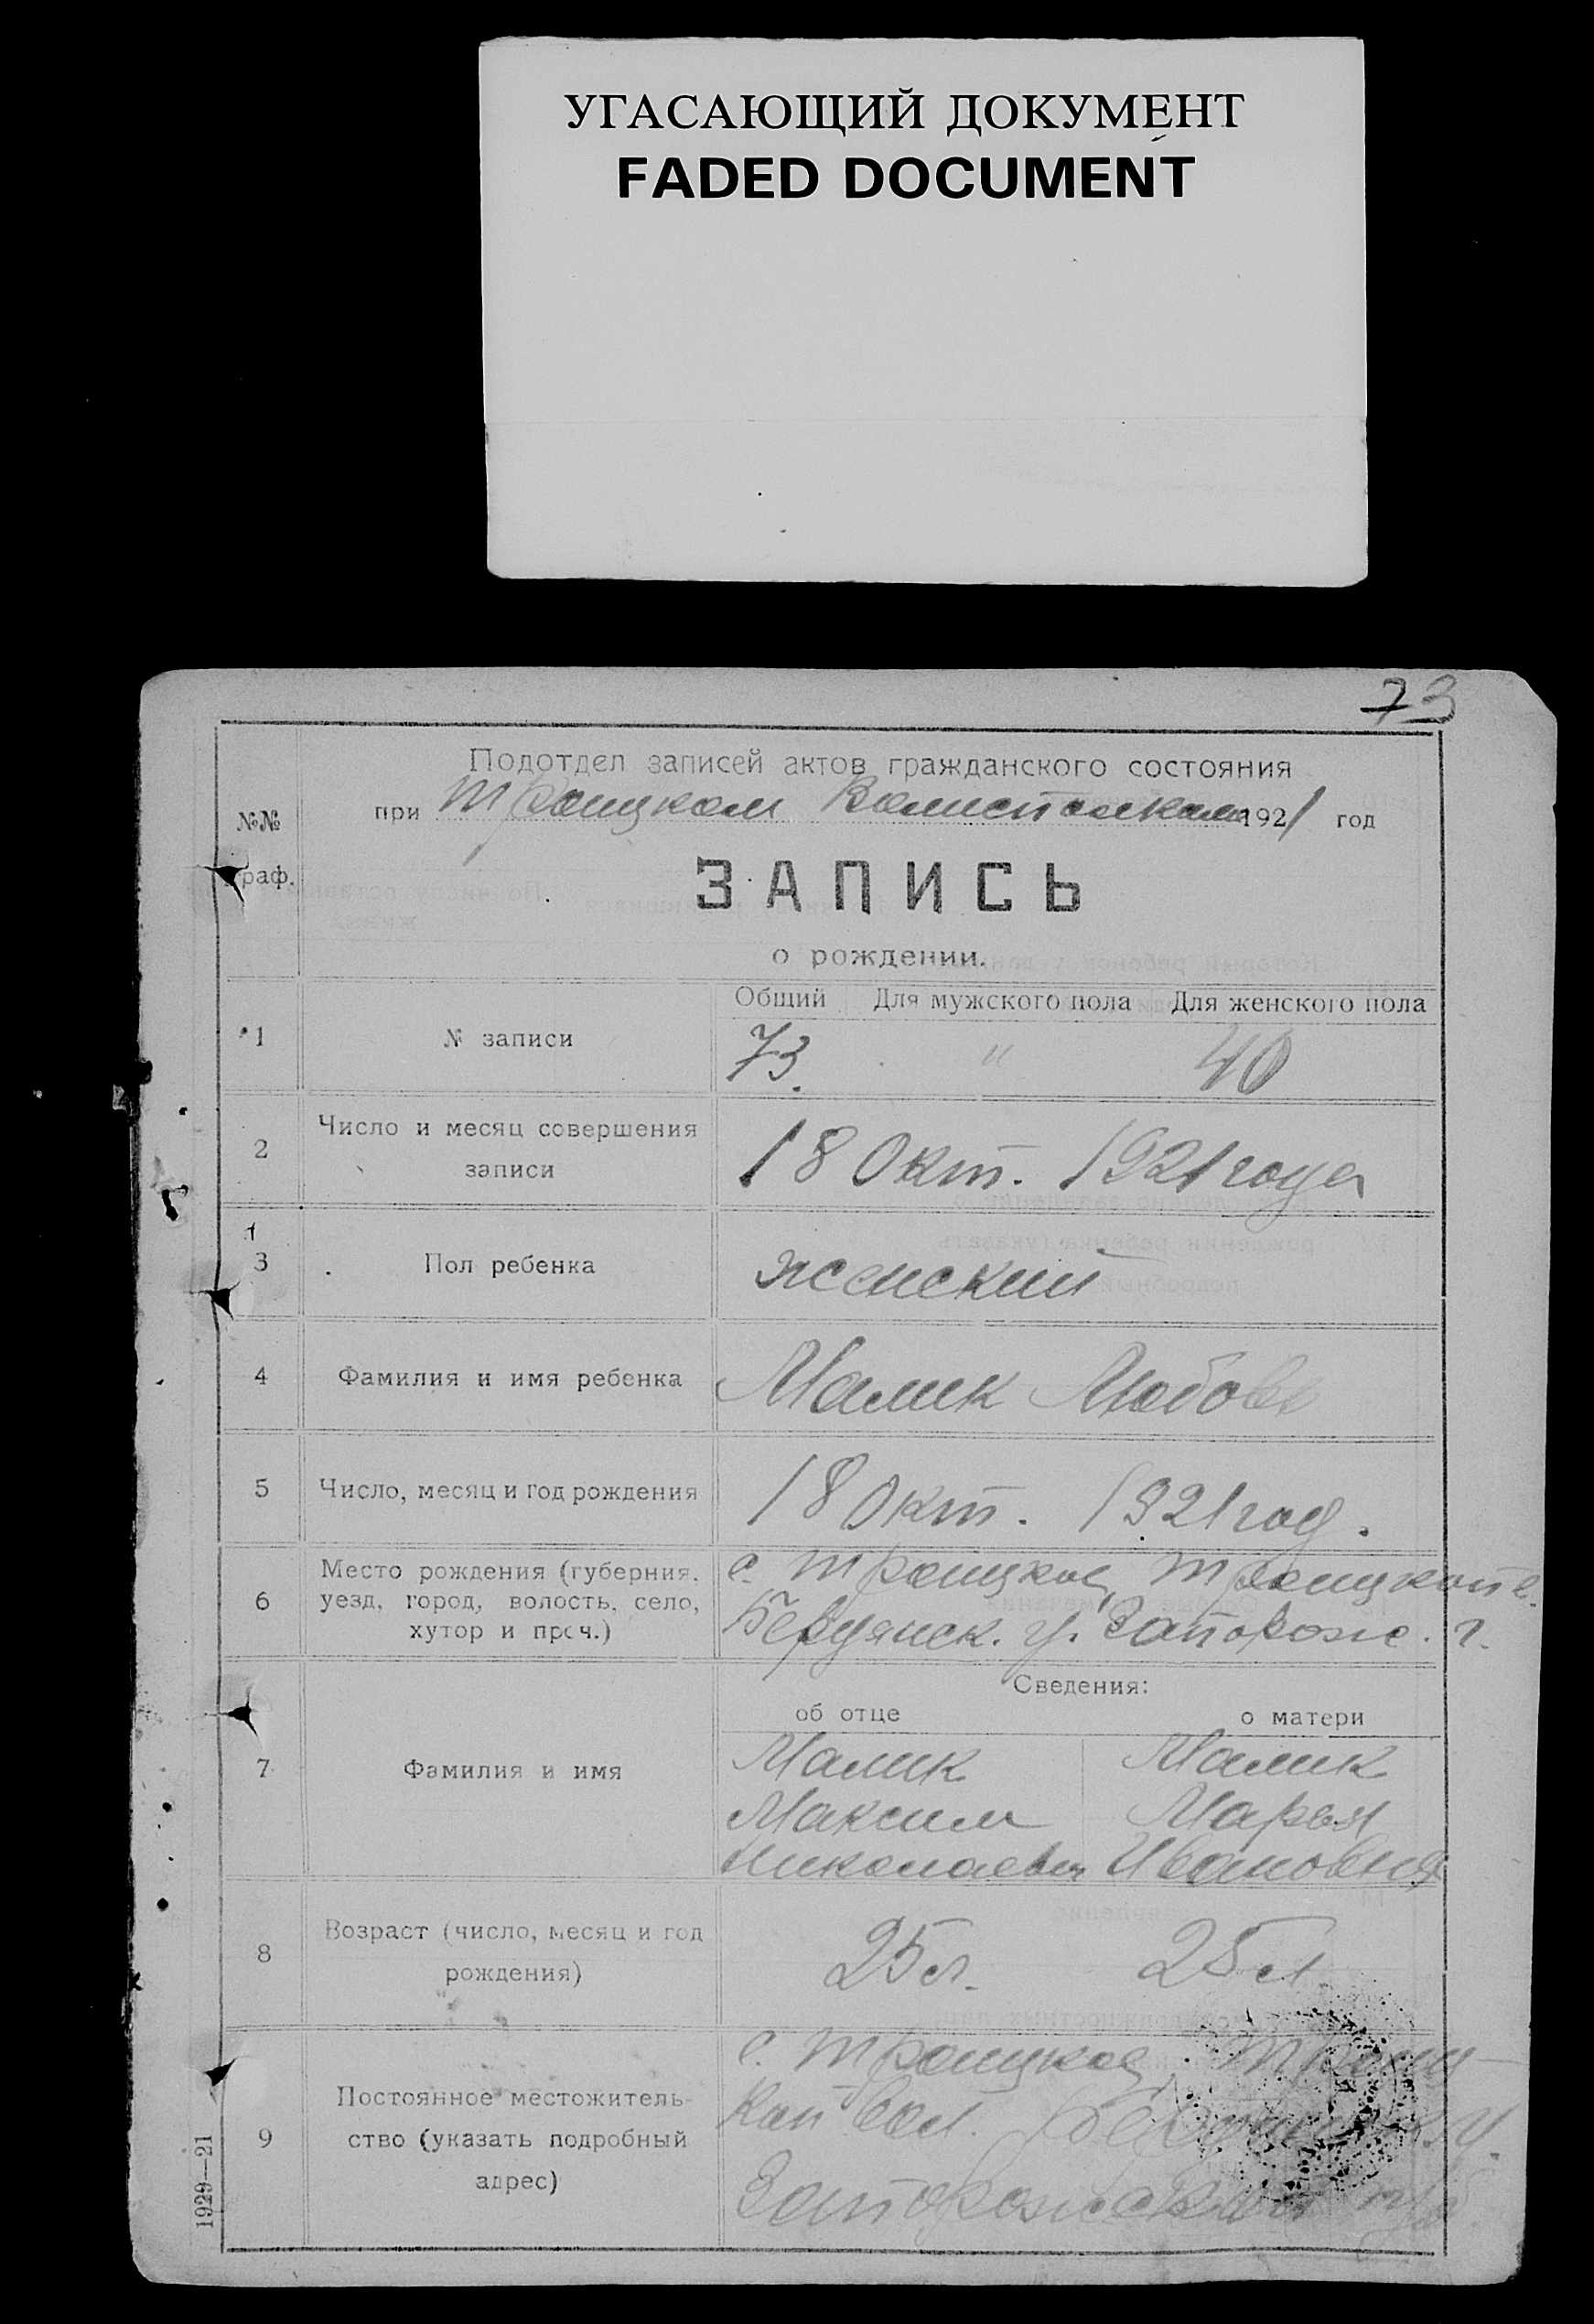 УГАСАЮЩИЙ ДОКУМЕНТ
FADED DOCUMENT
73
Подотдел записей актов гражданского состояния
№№
граф.
при Троицком Волисполкоме 1921 год
ЗАПИСЬ
о рождении.
Общий Для мужского пола Для женского пола
1 № записи 73. " 40
2 Число и месяц совершения
записи
18 Окт. 1921 года
3 Пол ребенка женский
4 Фамилия и имя ребенка Малик Любовь
5 Число, месяц и год рождения 18 Окт. 1921 год.
6 Место рождения (губерния,
уезд, город, волость, село,
хутор и проч.)
с. Троицкое, Троицкой в.
Бердянск. у. Запорож. г.
Сведения:
об отце о матери
7 Фамилия и имя
Малик Малик
Максим Марья
Николаевич Ивановна
8 Возраст (число, месяц и год
рождения)
25 л. 25 л.
9 Постоянное местожитель-
ство (указать подробный
адрес)
с. Троицкое, Троиц-
кой вол. Бердянск. у.
Запорожской губ.
1929—21